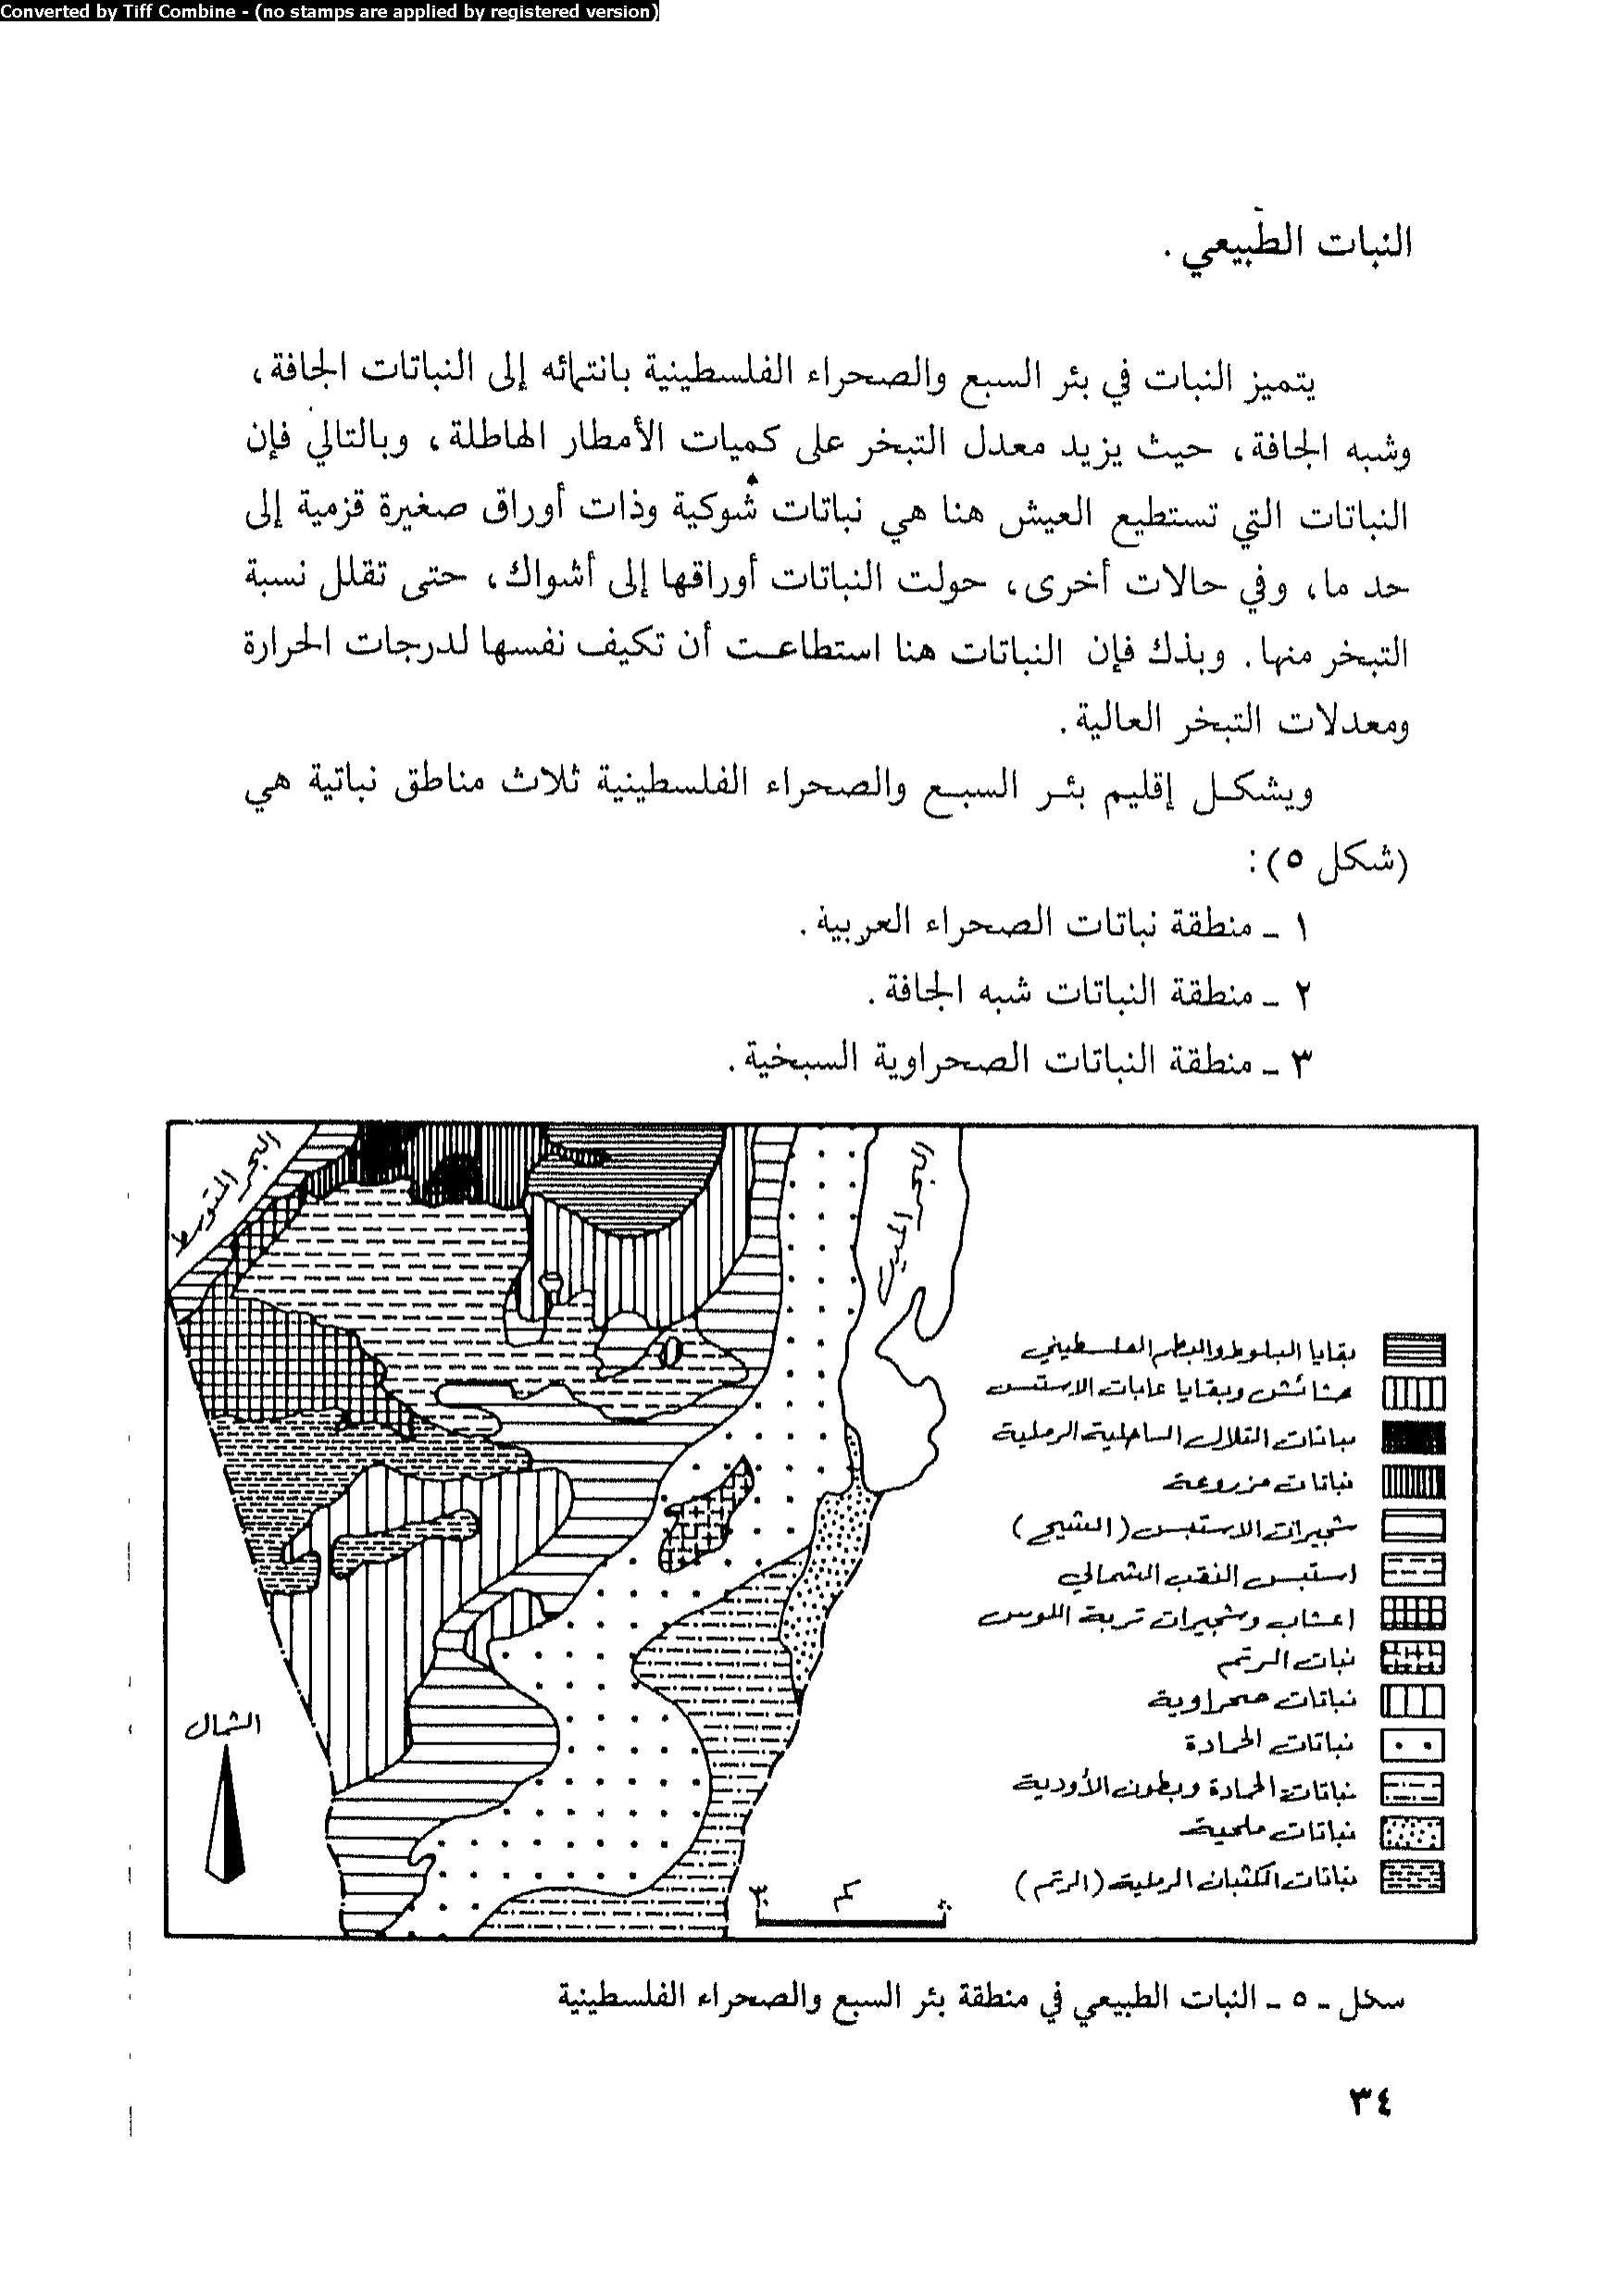 Converted by Tiff Combine - (no stamps are applied by registered version)
النبات الطّبيعي .
يتميز النبات في بئر السبع والصحراء الفلسطينية بانتمائه إلى النباتات الجافة،
وشبه الجافة، حيث يزيد معدل التبخر على كميات الأمطار الهاطلة، وبالتالي فإن
النباتات التي تستطيع العيش هنا هي نباتات شوكية وذات أوراق صغيرة قزمية إلى
حد ما، وفي حالات أخرى، حولت النباتات أوراقها إلى أشواك، حتى تقلل نسبة
التبخر منها. وبذلك فإن النباتات هنا استطاعت أن تكيف نفسها لدرجات الحرارة
ومعدلات التبخر العالية.
ويشكل إقليم بئر السبع والصحراء الفلسطينية ثلاث مناطق نباتية هي
(شكل ٥):
١ - منطقة نباتات الصحراء العربية.
٢ - منطقة النباتات شبه الجافة.
٣ - منطقة النباتات الصحراوية السبخية.
البحر المتوسط
البحر الميت
بقايا البلوط والبطم الفلسطيني
حشائش وبقايا غابات الاستبس
نباتات التلال الساحلية الرملية
نباتات مزروعة
شجيرات الاستبس (الشيح)
استبس النقب الشمالي
اعشاب وشجيرات تربة اللوس
نبات الرتم
نباتات صحراوية
نباتات الحمادة
نباتات الحمادة وبطون الأودية
نباتات ملحية
نباتات الكثبان الرملية (الرتم)
الشمال
كم
شكل - ٥ - النبات الطبيعي في منطقة بئر السبع والصحراء الفلسطينية
٣٤